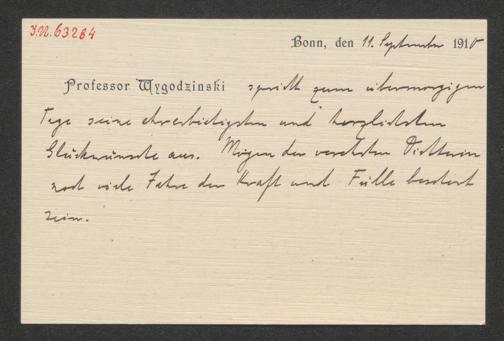 J.N. 63264
Bonn, den 11. September 1910
Professor Wygodzinski spricht zum übermorgigen
Tage seine ehrerbietigsten und herzlichsten
Glückwünsche aus. Mögen der verehrten Dichterin
noch viele Jahre der Kraft und Fülle beschert
sein.